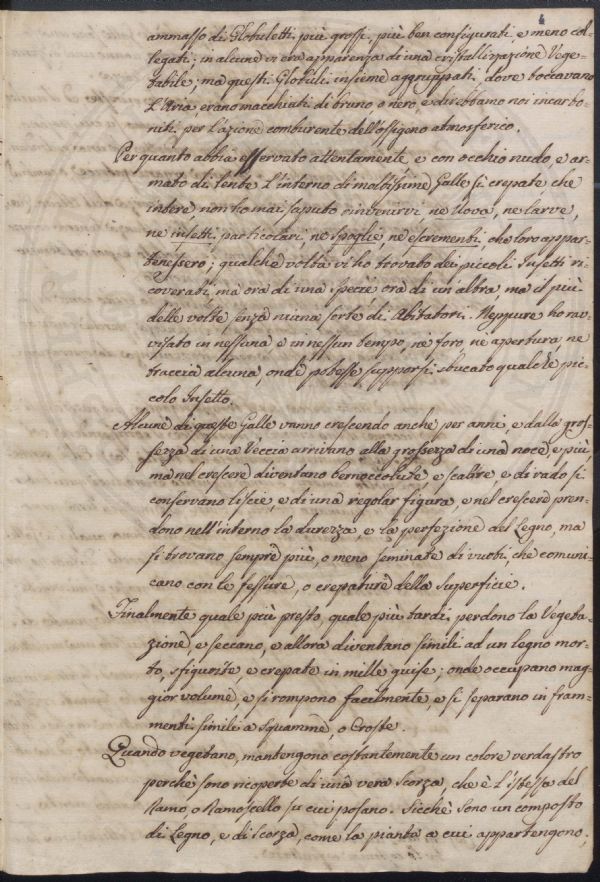 4
ammasso di Globuletti più grossi, più ben configurati, e meno col-
legati; in alcune vi era apparenza di una cristallizazione Vege-
tabile; ma questi Globuli insieme aggruppati, dove toccavano
l'Aria, erano macchiati di bruno o nero, e direbbamo noi incarbo-
niti per l'azione comburente dell'ossigeno atmosferico.
Per quanto abbia osservato attentamente, e con occhio nudo, e ar-
mato di lente l'interno di moltissime Galle sì crepate che
intere non ho mai saputo rinvenirvi nè Uova, nè larve,
nè insetti particolari, nè Spoglie, nè escrementi, che loro appar-
tenessero; qualche volta vi ho trovato dei piccoli Insetti ri-
coverati, ma ora di una specie, ora di un'altra, ma il più
delle volte, senza niuna sorte di Abitatori. Neppure ho rav-
visato in nessuna e in nessun tempo, nè foro nè apertura, nè
traccia alcuna, onde potesse supporsi sbucato qualche pic-
colo Insetto.
Alcune di queste Galle vanno crescendo anche per anni, e dalla gros-
sezza di una Veccia arrivano alla grossezza di una noce, e più,
ma nel crescere diventano bernoccolute, e scabre, e di rado si
conservano liscie, e di una regolar figura, e nel crescere pren-
dono nell'interno la durezza, e la perfezione del Legno, ma
si trovano sempre più, o meno seminate di vuoti, che comuni-
cano con le fessure, o crepature della superficie.
Finalmente quale più presto, quale più tardi, perdono la Vegeta-
zione, e seccano, e allora diventano simili ad un legno mor-
to, sfigurite, e crepate in mille guise; onde occupano mag-
gior volume, e si rompono facilmente, e si separano in fram-
menti simili a Squamme, o Croste.
Quando vegetano, mantengono costantemente un colore verdastro
perchè sono ricoperte di una vera Scorza, che è l'istessa del
Ramo, o Ramoscello su cui posano. Sicchè sono un composto
di Legno, e di scorza, come la pianta a cui appartengono,